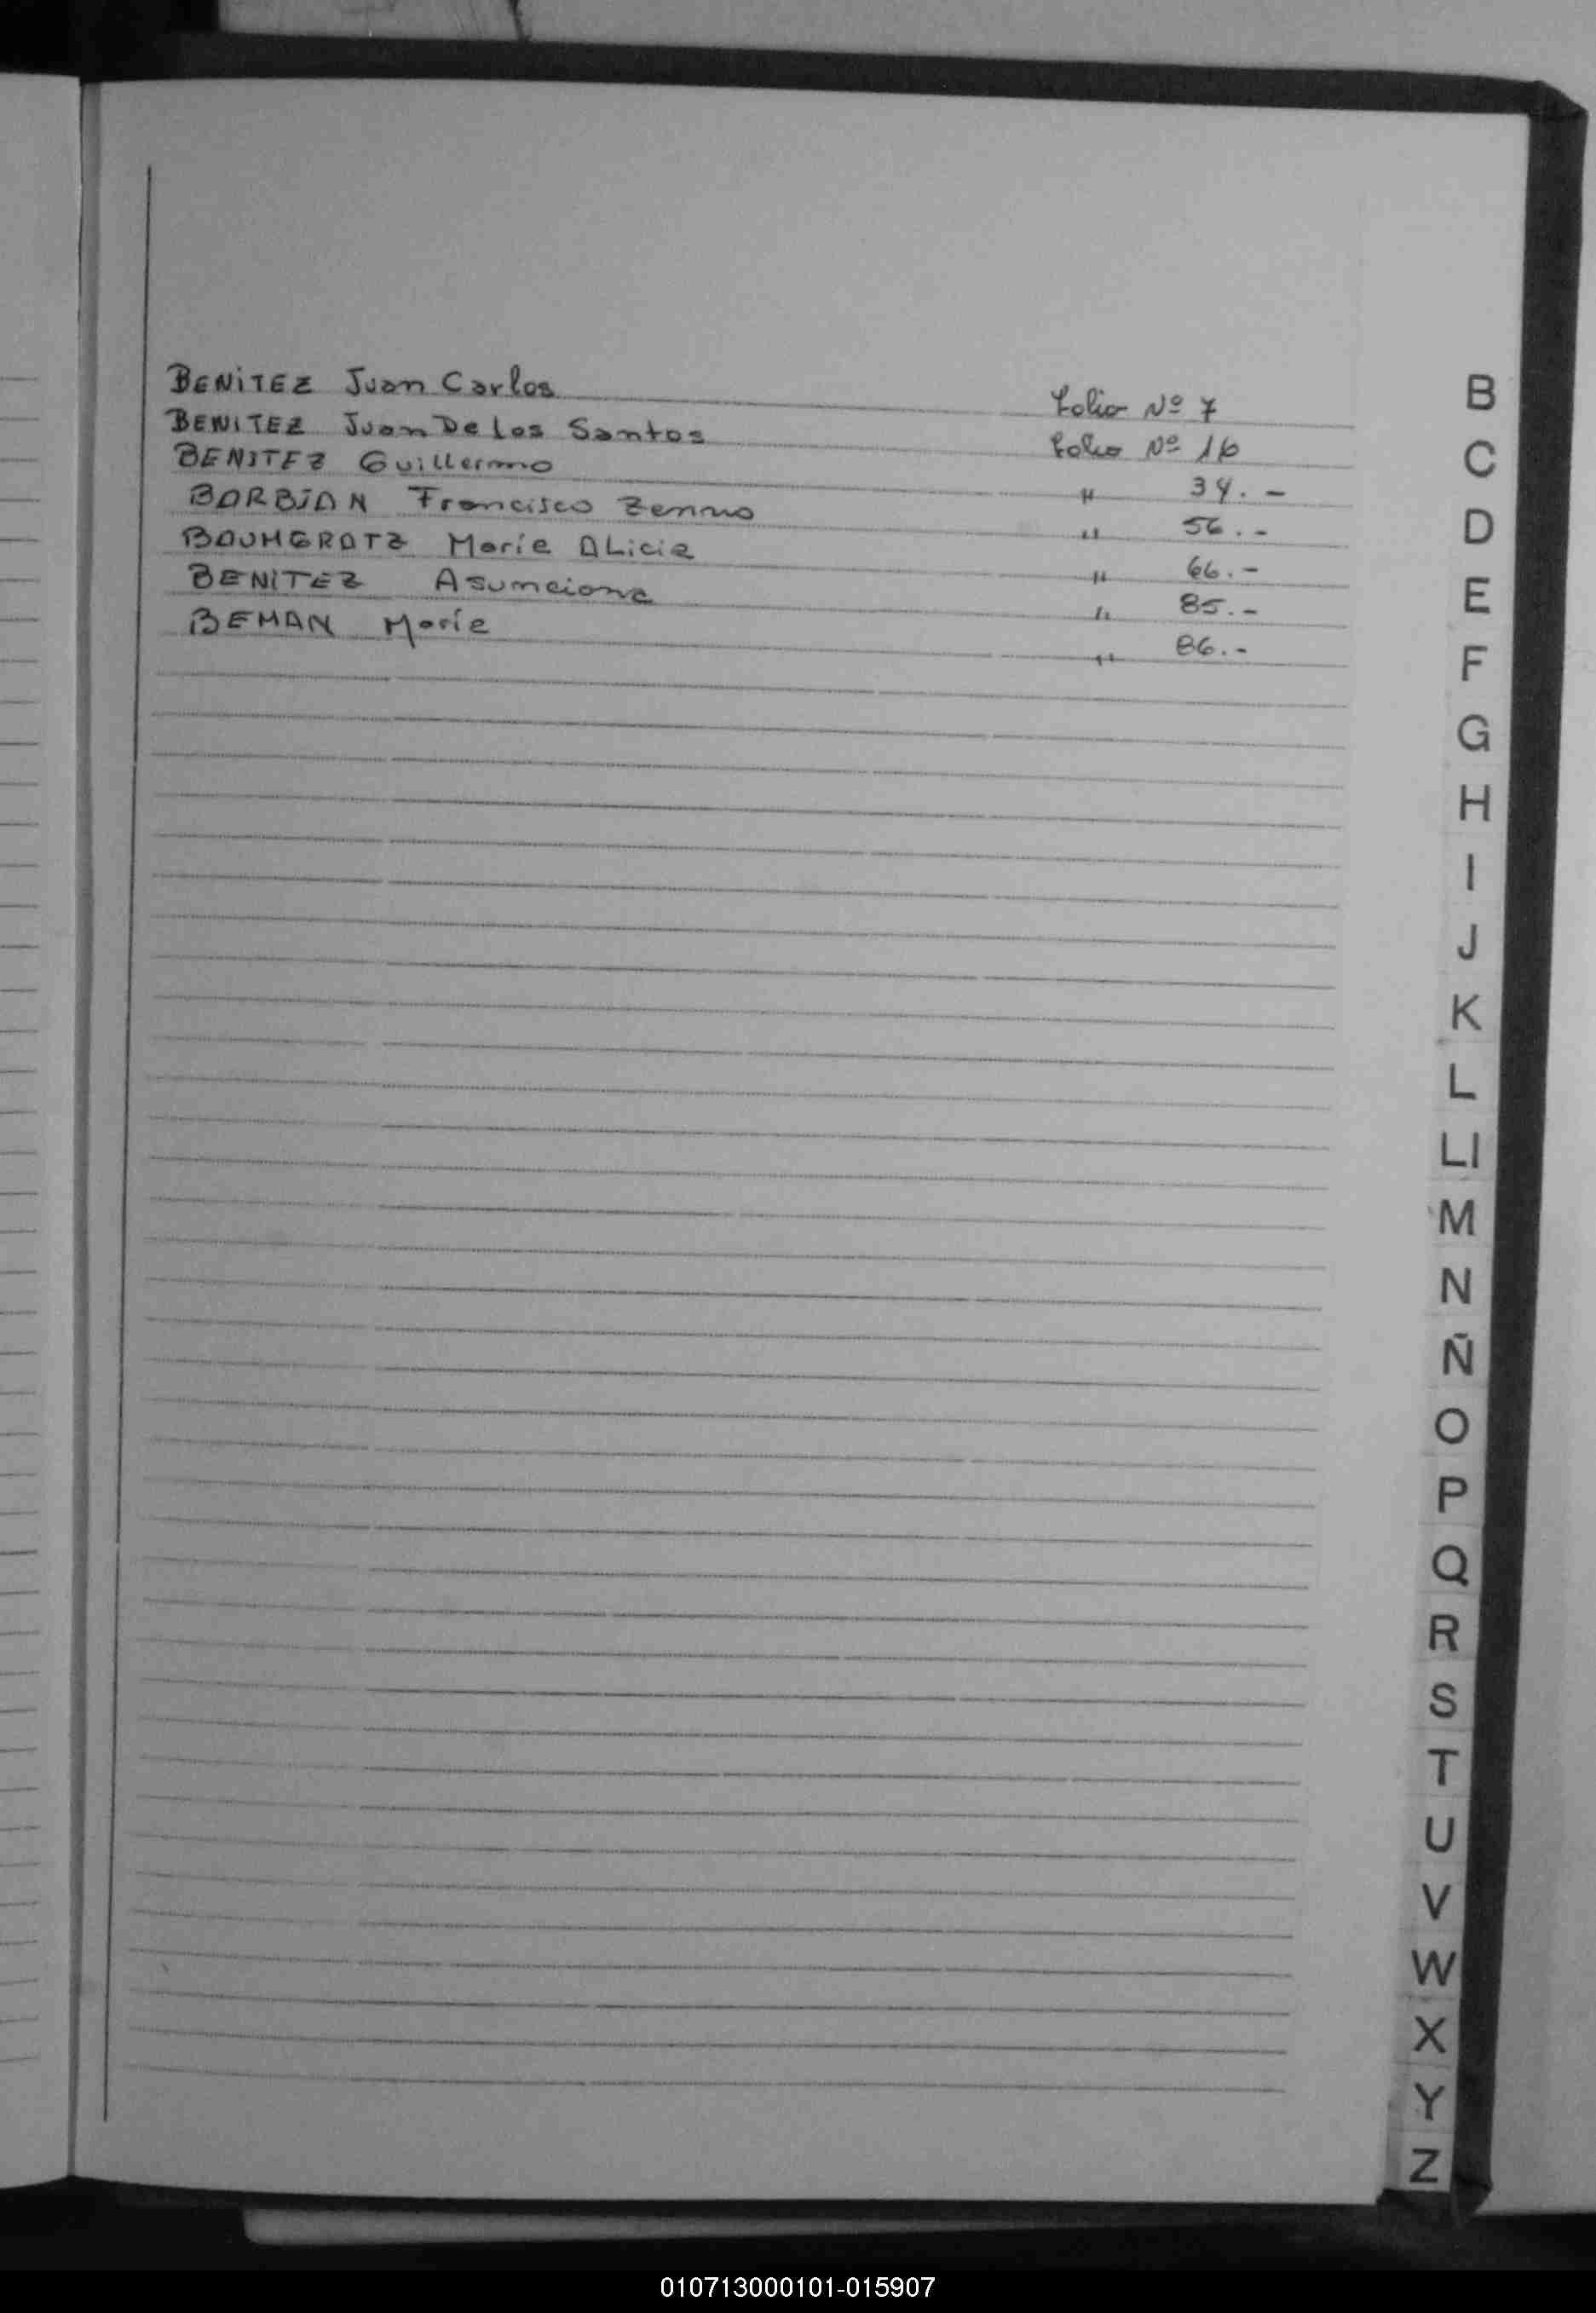 BENITEZ Juan Carlos Folio Nº 7
BENITEZ Juan De Los Santos Folio Nº 16
BENITEZ Guillermo " 34.-
BARBIAN Francisco Zenno " 56.-
BAUMGRATZ María ALicia " 66.-
BENITEZ Asumciona " 85.-
BEMAN María " 86.-
B
C
D
E
F
G
H
I
J
K
L
Ll
M
N
Ñ
O
P
Q
R
S
T
U
V
W
X
Y
Z
010713000101-015907